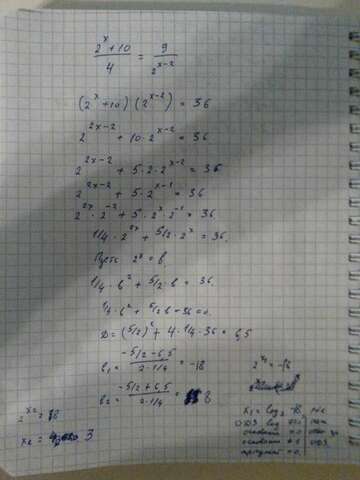 2^x+10 / 4 = 9 / 2^x-2
(2^x+10)(2^x-2) = 36
2^2x-2 + 10·2^x-2 = 36
2^2x-2 + 5·2·2^x-2 = 36
2^2x-2 + 5·2^x-1 = 36
2^2x·2^-2 + 5·2^x·2^-1 = 36
1/4·2^2x + 5/2·2^x = 36.
Пусть 2^x = b.
1/4·b² + 5/2·b = 36.
1/4·b² + 5/2 b - 36 = 0.
D = (5/2)² + 4·1/4·36 = 6,5
b₁ = -5/2-6,5 / 2·1/4 = -18
b₂ = -5/2+6,5 / 2·1/4 = 8
2^x₂ = 8
x₂ = 3
2^x₁ = -18
x₁ = log₂ -18
ОДЗ log